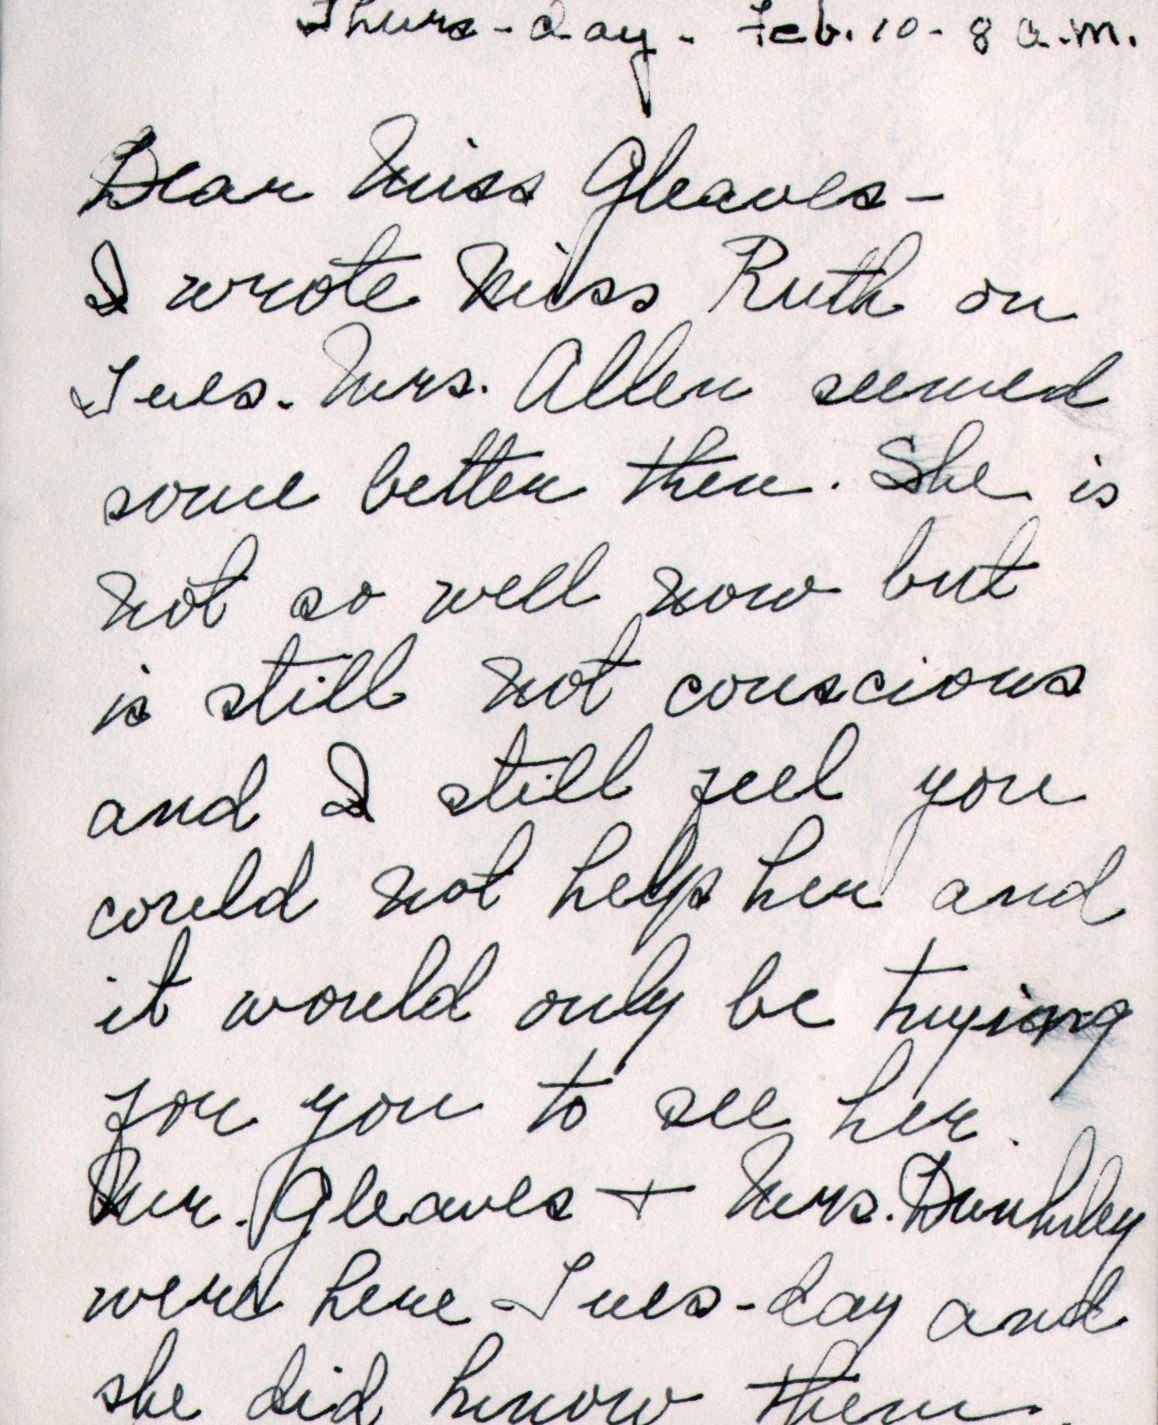 Thurs-day - Feb. 10 - 8 a.m.
Dear Miss Gleaves -
I wrote Miss Ruth on
Tues. Mrs. Allen seemed
some better then. She is
not so well now but
is still not conscious
and I still feel you
could not help her and
it would only be trying
for you to see her.
Mr. Gleaves + Mrs. Dunkley
were here Tues-day and
she did know them.